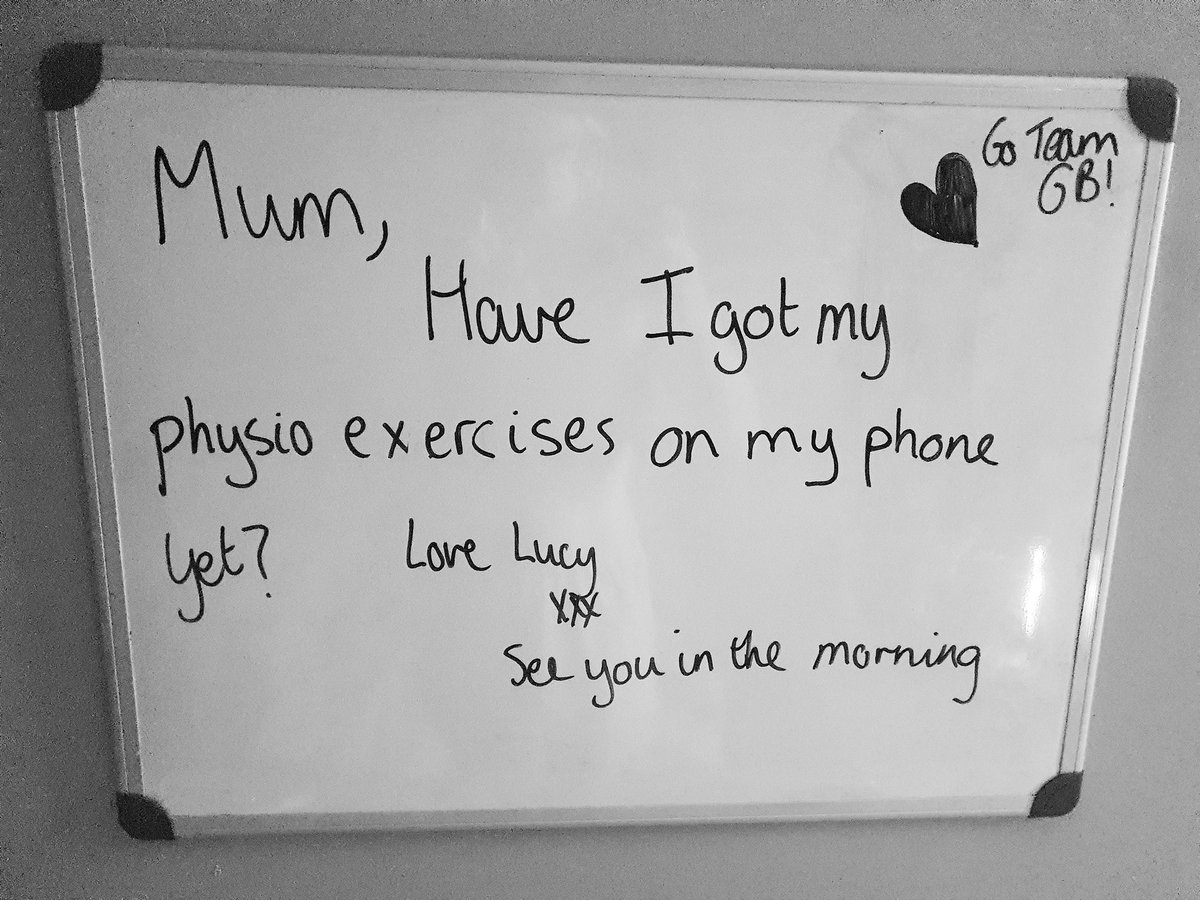 Go Team
GB!
Mum,
Have I got my
physio exercises on my phone
yet?
Love Lucy
xxx
See you in the morning